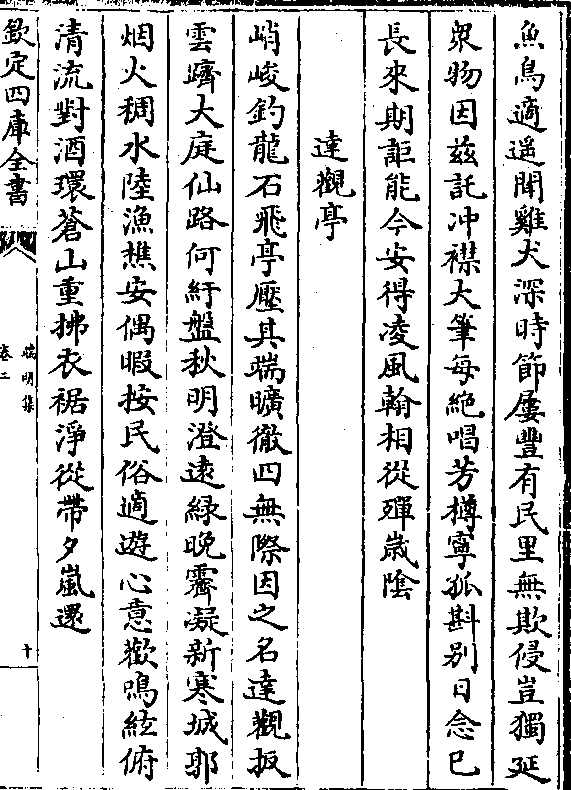 魚鳥適遥聞雞犬深時節屢豐有民里無欺侵豈獨延
衆物因兹託冲襟大筆每絶唱芳樽寧孤斟别日念已
長來期詎能今安得凌風翰相從殫歳隂
達觀亭
峭峻釣龍石飛亭壓其端曠徹四無際因之名達觀扳
雲躋大庭仙路何紆盤秋明澄逺緑晚霽凝新寒城郭
烟火稠水陸漁樵安偶暇按民俗適遊心意歡鳴絃俯
清流對酒環蒼山重拂衣裾淨從帶夕嵐還
欽定四庫全書
端明集
卷二
十